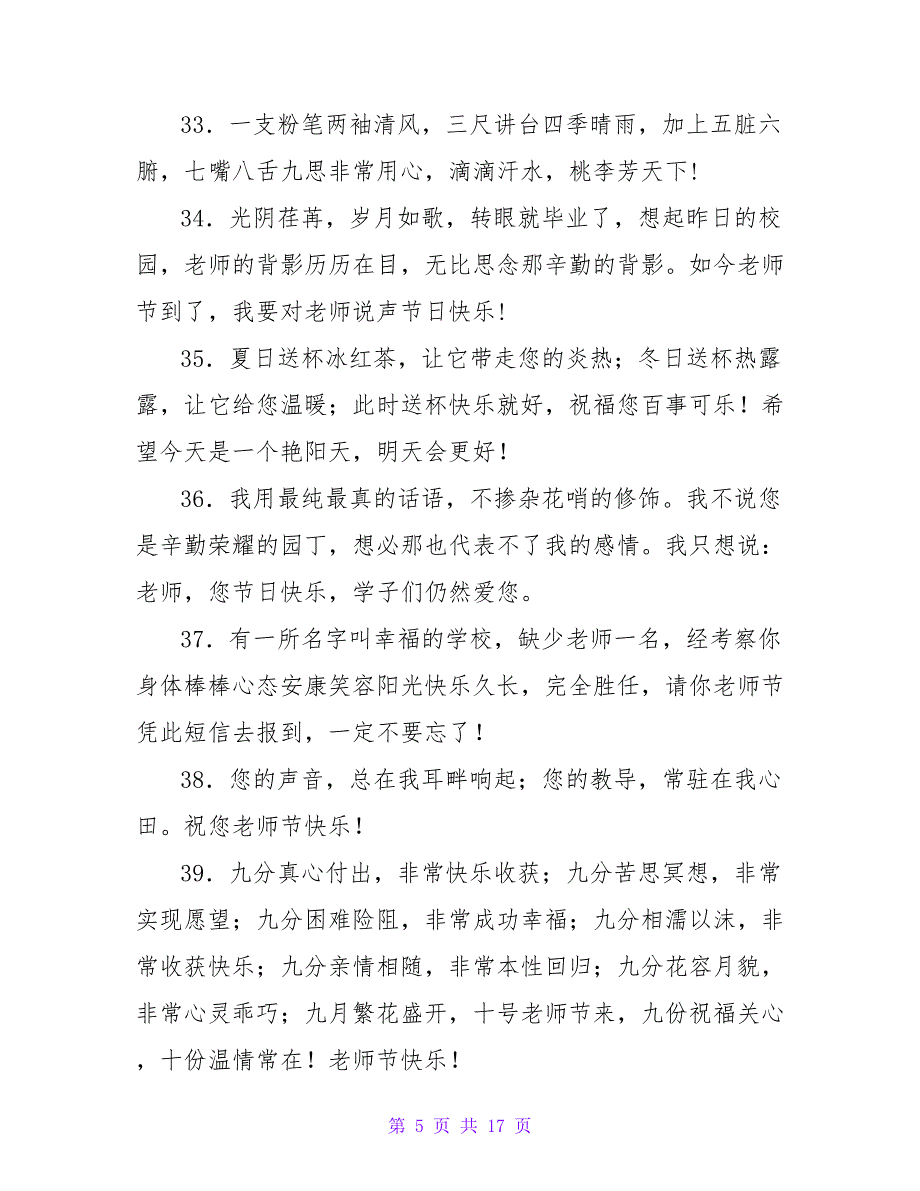 33．一支粉笔两袖清风，三尺讲台四季晴雨，加上五脏六
腑，七嘴八舌九思非常用心，滴滴汗水，桃李芳天下!
34．光阴荏苒，岁月如歌，转眼就毕业了，想起昨日的校
园，老师的背影历历在目，无比思念那辛勤的背影。如今老师
节到了，我要对老师说声节日快乐!
35．夏日送杯冰红茶，让它带走您的炎热；冬日送杯热露
露，让它给您温暖；此时送杯快乐就好，祝福您百事可乐！希
望今天是一个艳阳天，明天会更好！
36．我用最纯最真的话语，不掺杂花哨的修饰。我不说您
是辛勤荣耀的园丁，想必那也代表不了我的感情。我只想说：
老师，您节日快乐，学子们仍然爱您。
37．有一所名字叫幸福的学校，缺少老师一名，经考察你
身体棒棒心态安康笑容阳光快乐久长，完全胜任，请你老师节
凭此短信去报到，一定不要忘了！
38．您的声音，总在我耳畔响起；您的教导，常驻在我心
田。祝您老师节快乐！
39．九分真心付出，非常快乐收获；九分苦思冥想，非常
实现愿望；九分困难险阻，非常成功幸福；九分相濡以沫，非
常收获快乐；九分亲情相随，非常本性回归；九分花容月貌，
非常心灵乖巧；九月繁花盛开，十号老师节来，九份祝福关心
，十份温情常在！老师节快乐！
第 5 页 共 17 页